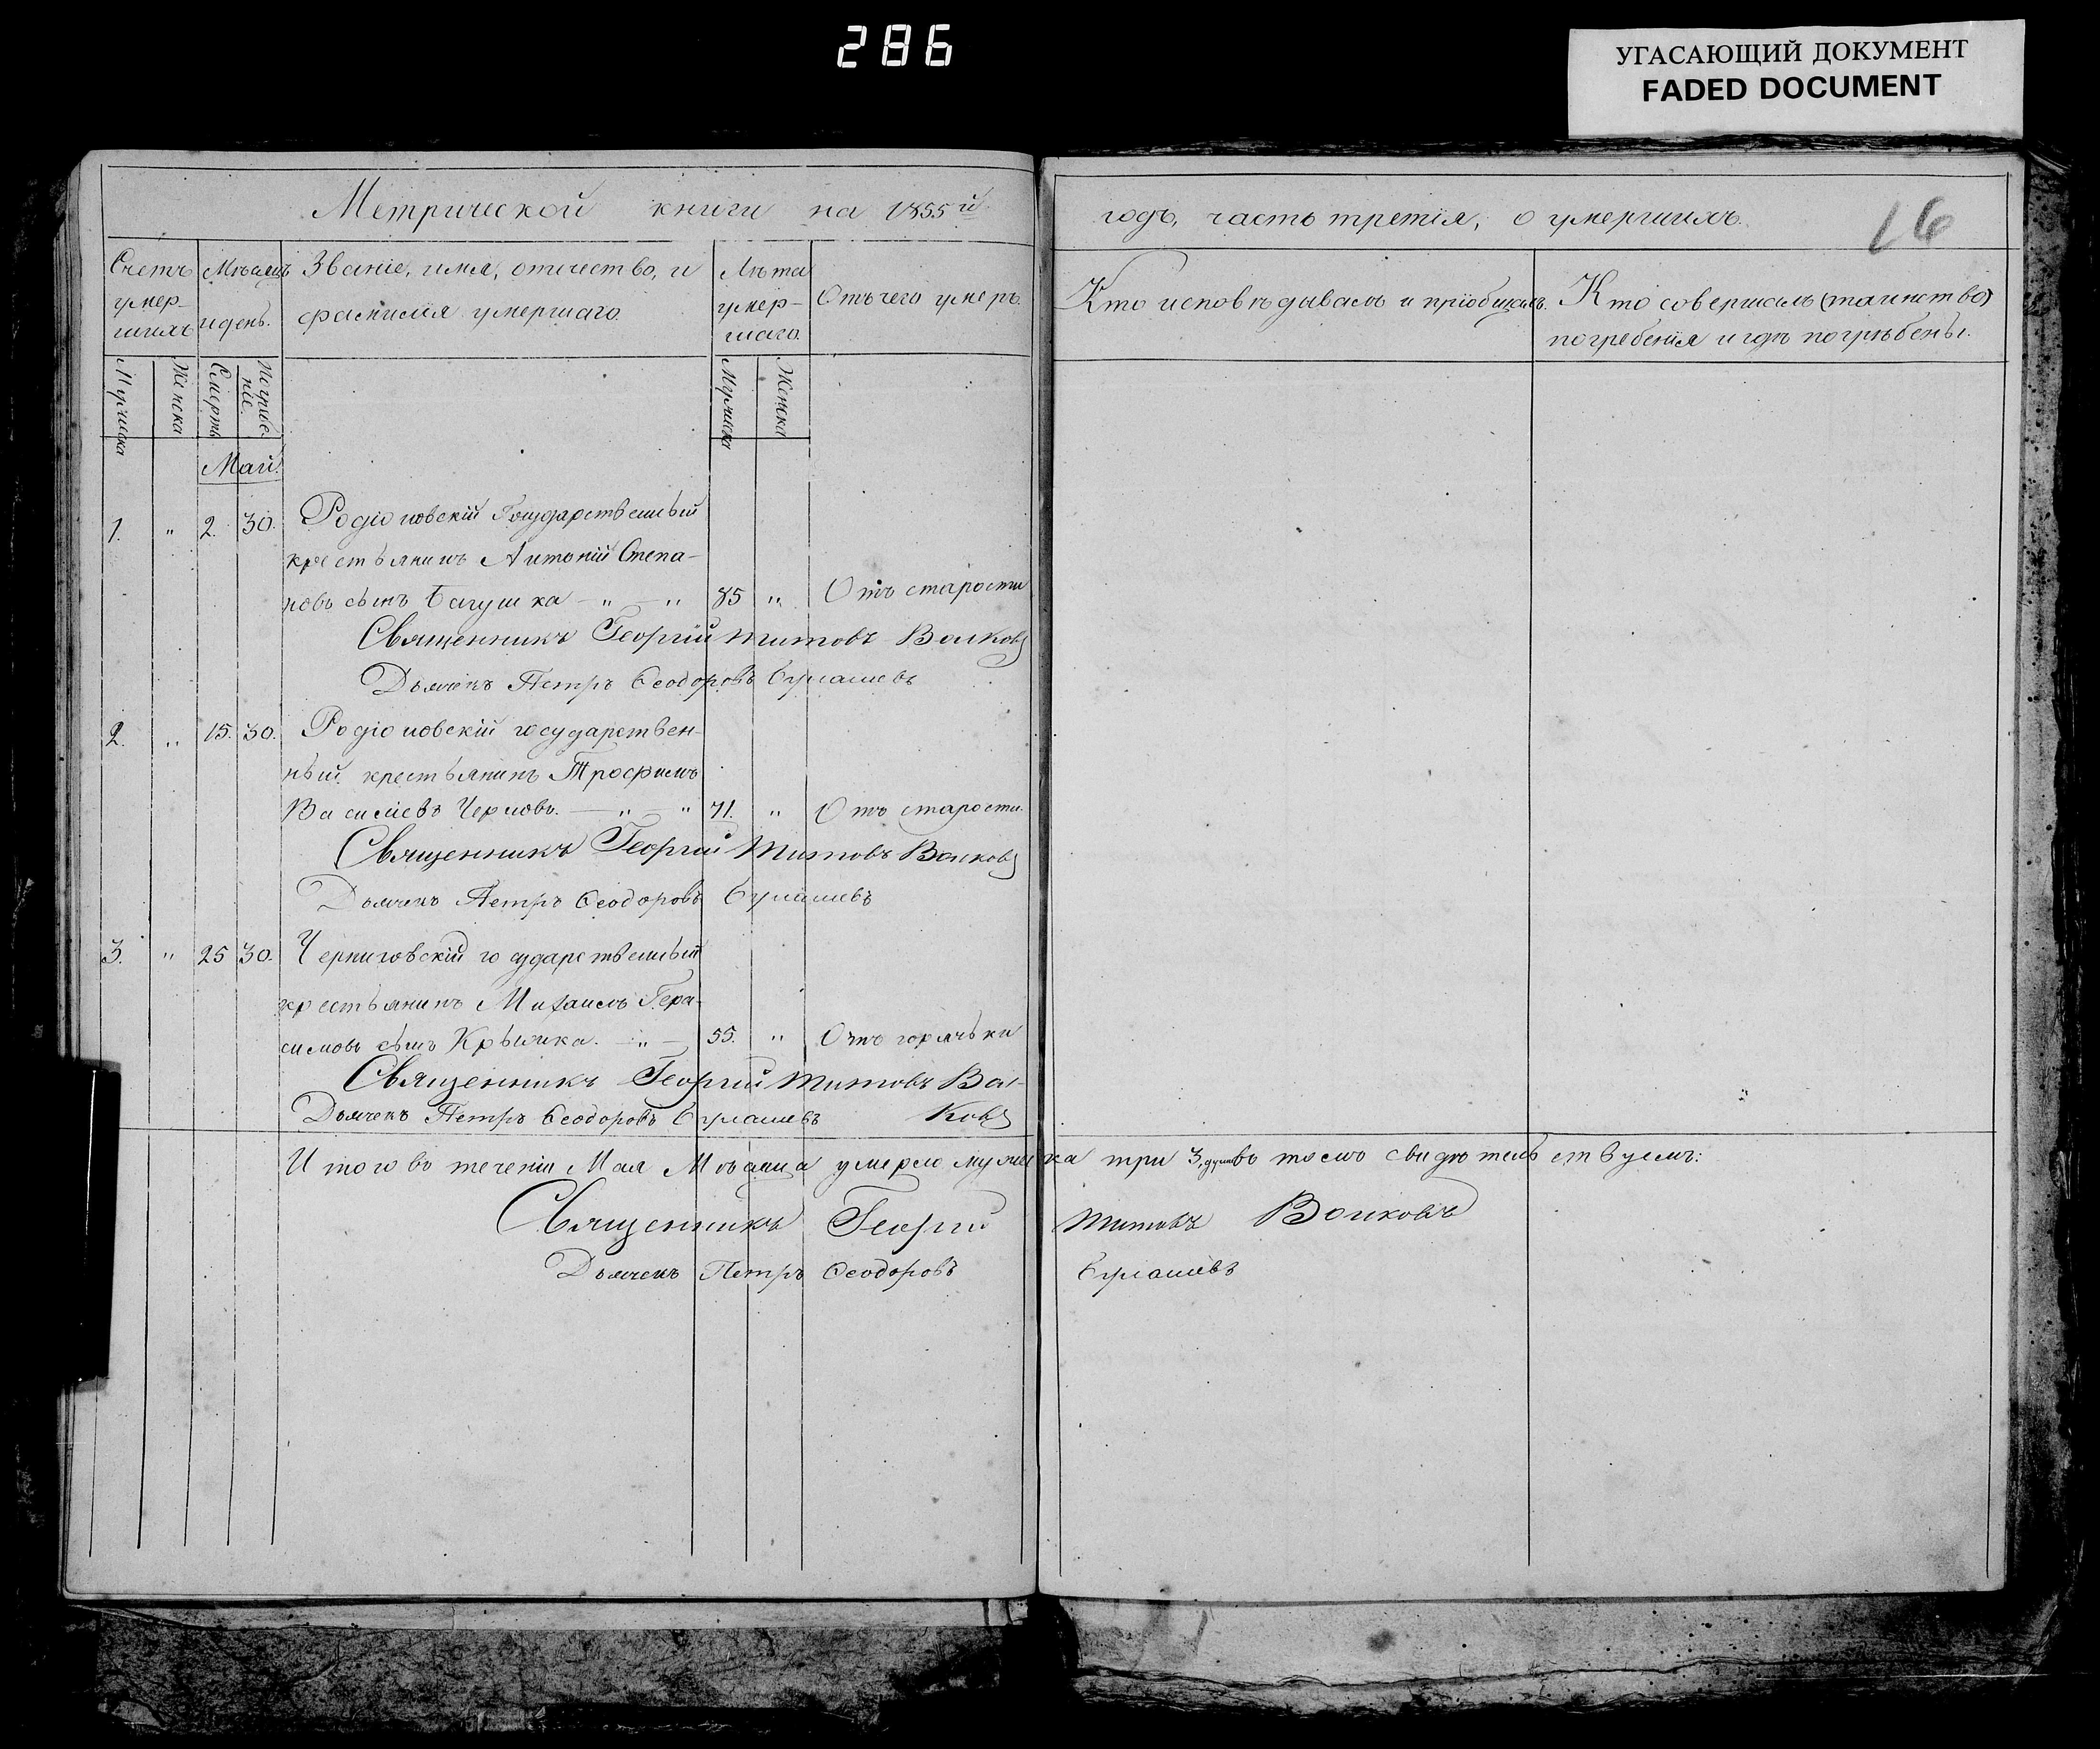 286
УГАСАЮЩИЙ ДОКУМЕНТ
FADED DOCUMENT
Метрической книги на 1855й годъ, часть третія, о умершихъ.
16
Счетъ умер-шихъ
Мѣсяцъ и день.
Званіе, имя, отичество, и фамилія умершаго.
Лѣта умер-шаго.
Отъ чего умеръ.
Кто исповѣдывалъ и пріобщалъ.
Кто совершалъ (таинство) погребенія и гдѣ погрѣбены.
Мужиска
Женска
Смерть
Погрибе-ніе.
Мужиска
Женска
Май.
1. " 2. 30. Родіоновскій Государственный
крестьянинъ Антоній Степа-
новъ сынъ Багушка — " — " 85 " Отъ старости
Священникъ Георгій Титовъ Волковъ
Дьячекъ Петръ Ѳеодоровъ
2. " 15. 30. Родіоновскій государствен-
ный крестьянинъ Трофимъ
Василіевъ Черновъ. — " — " 71. " Отъ старости.
Священникъ Георгій Титовъ Волковъ
Дьячекъ Петръ Ѳеодоровъ
3. " 25 30. Черниговскій государственный
крестьянинъ Михаилъ Гера-
симовъ сынъ — " — 55. " Отъ горячьки
Священникъ Георгій Титовъ Вол-
ковъ
Дьячекъ Петръ Ѳеодоровъ
Итого въ теченіи Мая Мѣсяца умерло мужиска три 3, душъ въ томъ свидѣтельствуемъ:
Священникъ Георгій Титовъ Волковъ
Дьячекъ Петръ Ѳеодоровъ